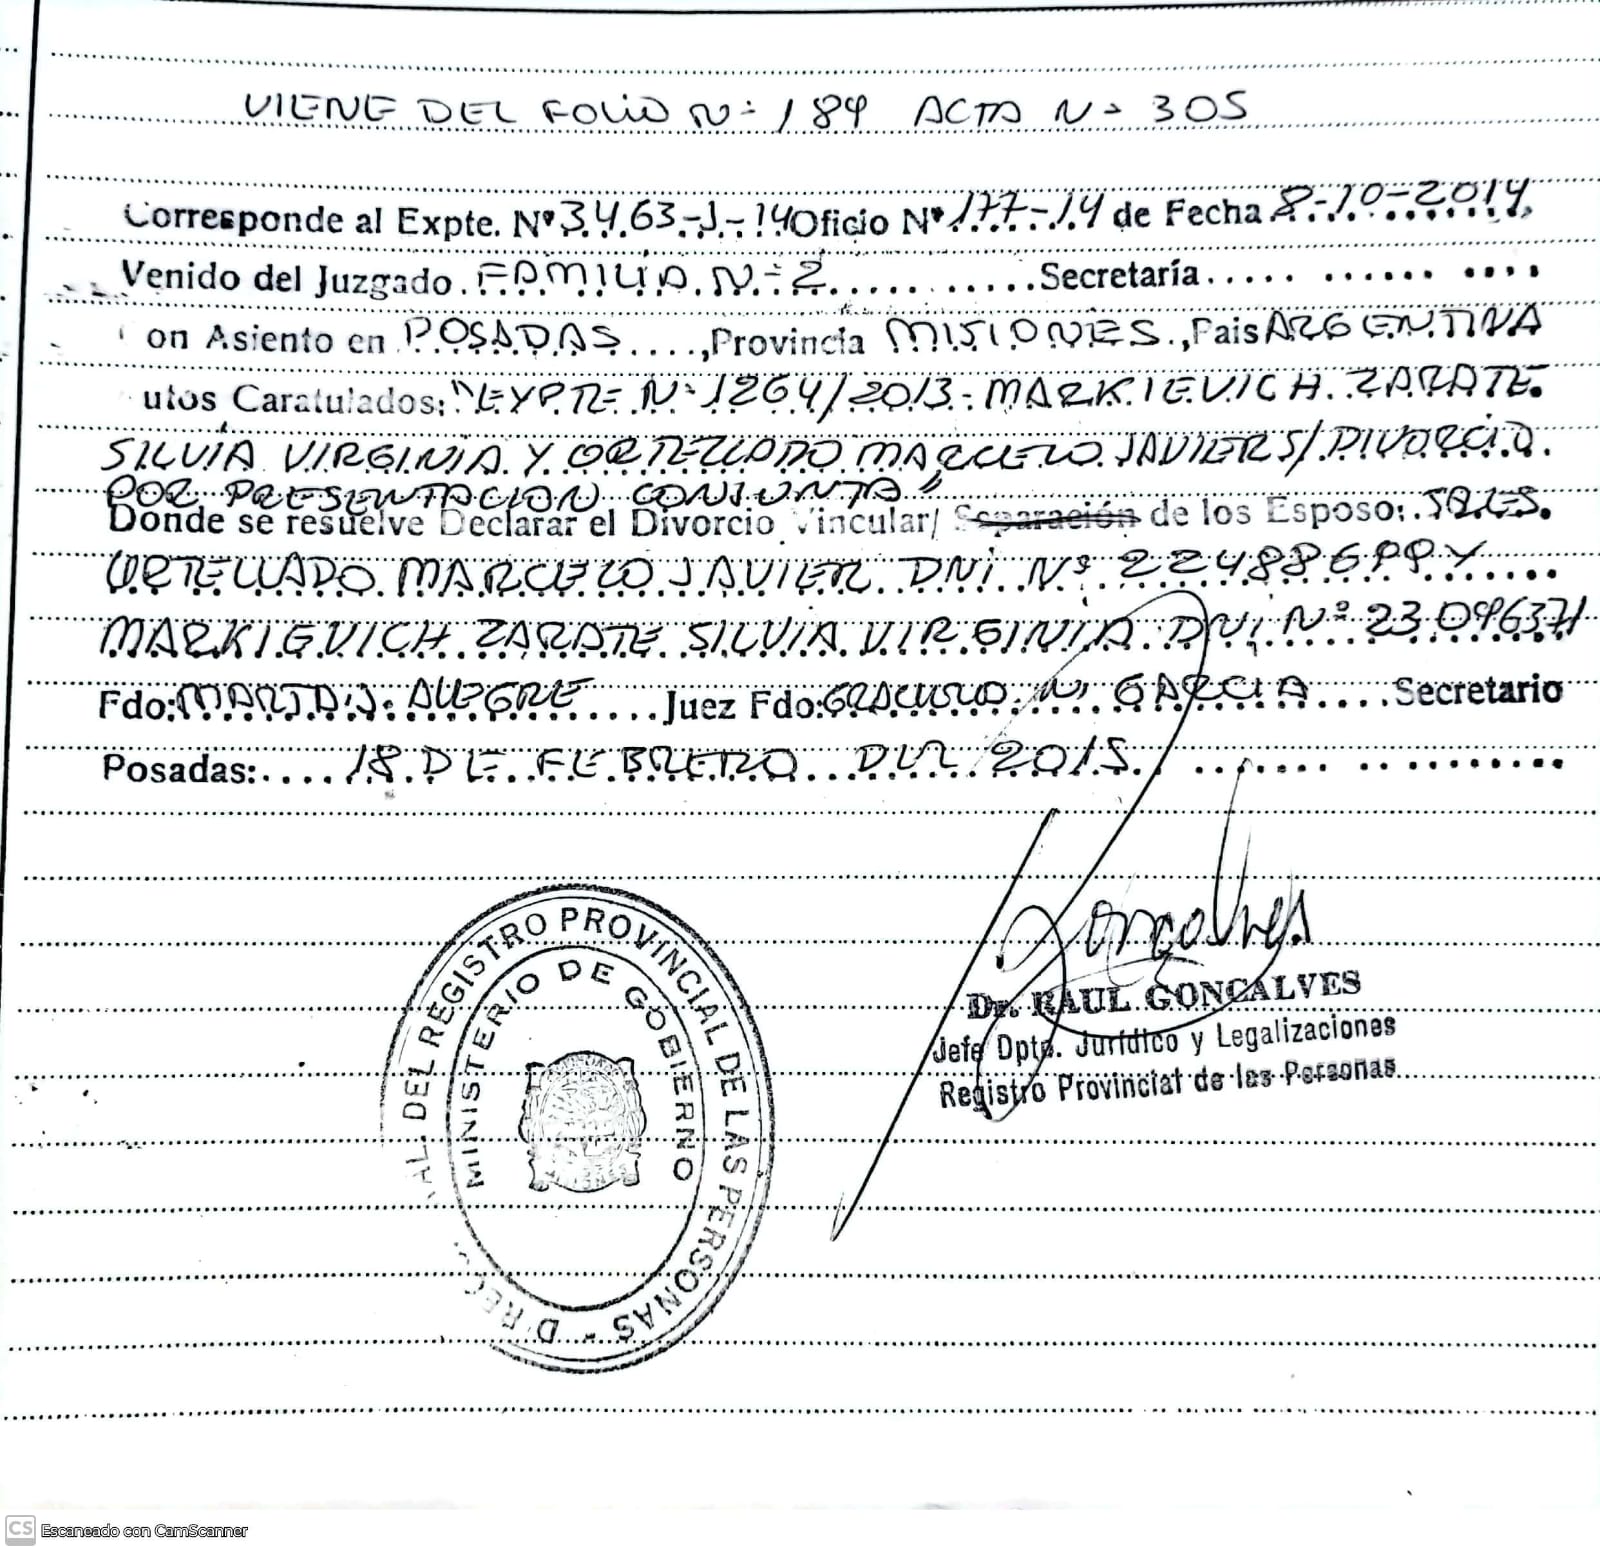 VIENE DEL FOLIO N- 184 ACTA N- 305
Corresponde al Expte. Nº 3463-J-14 Oficio Nº 177-14 de Fecha 8-10-2014,
Venido del Juzgado. FAMILIA N-2 Secretaría
on Asiento en POSADAS, Provincia MISIONES, Pais ARGENTINA
utos Caratulados: "EXPTE N- 1264/2013- MARKIEVICH ZARATE
SILVIA VIRGINIA Y ORTELLADO MARCELO JAVIER S/DIVORCIO
POR PRESENTACION CONJUNTA"
Donde se resuelve Declarar el Divorcio Vincular/ Separación de los Esposo:
ORTELLADO MARCELO JAVIER DNI Nº 22488699 Y
MARKIEVICH ZARATE SILVIA VIRGINIA DNI Nº 23.096371
Fdo: ALEGRE Juez Fdo: N. GARCIA Secretario
Posadas: 18 DE FEBRERO DEL 2015
Gonçalves
Dr. RAUL GONCALVES
Jefe Dpto. Jurídico y Legalizaciones
Registro Provincial de las Personas
AL DEL REGISTRO PROVINCIAL DE LAS PERSONAS - DIREC
MINISTERIO DE GOBIERNO
CS Escaneado con CamScanner